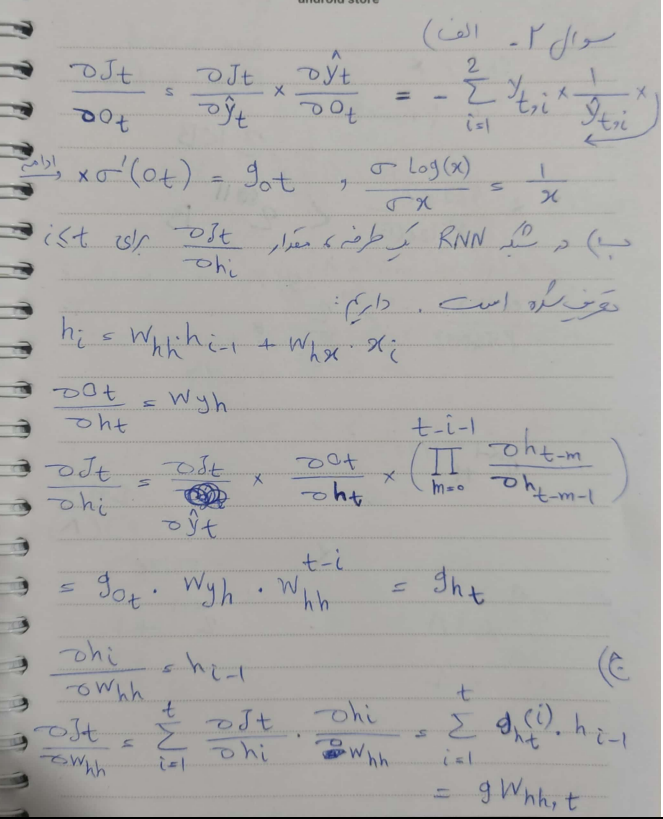 android store
سوال ۲ - الف)
∂Jt/∂Ot = ∂Jt/∂ŷt × ∂ŷt/∂Ot = - Σ_{i=1}^{2} y_{t,i} × 1/ŷ_{t,i} ×
ادامه → × σ'(Ot) = g_{Ot} , σ Log(x)/σx = 1/x
ب) در شبکه RNN یک طرفه، مقدار ∂Jt/∂hi برای i≤t
تعریف شده است. داریم:
h_i = W_{hh} h_{i-1} + W_{hx} · x_i
∂Ot/∂ht = Wyh
∂Jt/∂hi = ∂Jt/∂ŷt × ∂Ot/∂ht × (Π_{m=0}^{t-i-1} ∂h_{t-m}/∂h_{t-m-1})
= g_{Ot} · Wyh · W_{hh}^{t-i} = g_{ht}
ج)
∂hi/∂W_{hh} = h_{i-1}
∂Jt/∂W_{hh} = Σ_{i=1}^{t} ∂Jt/∂hi · ∂hi/∂W_{hh} = Σ_{i=1}^{t} g_{ht}^{(i)} · h_{i-1}
= g W_{hh,t}